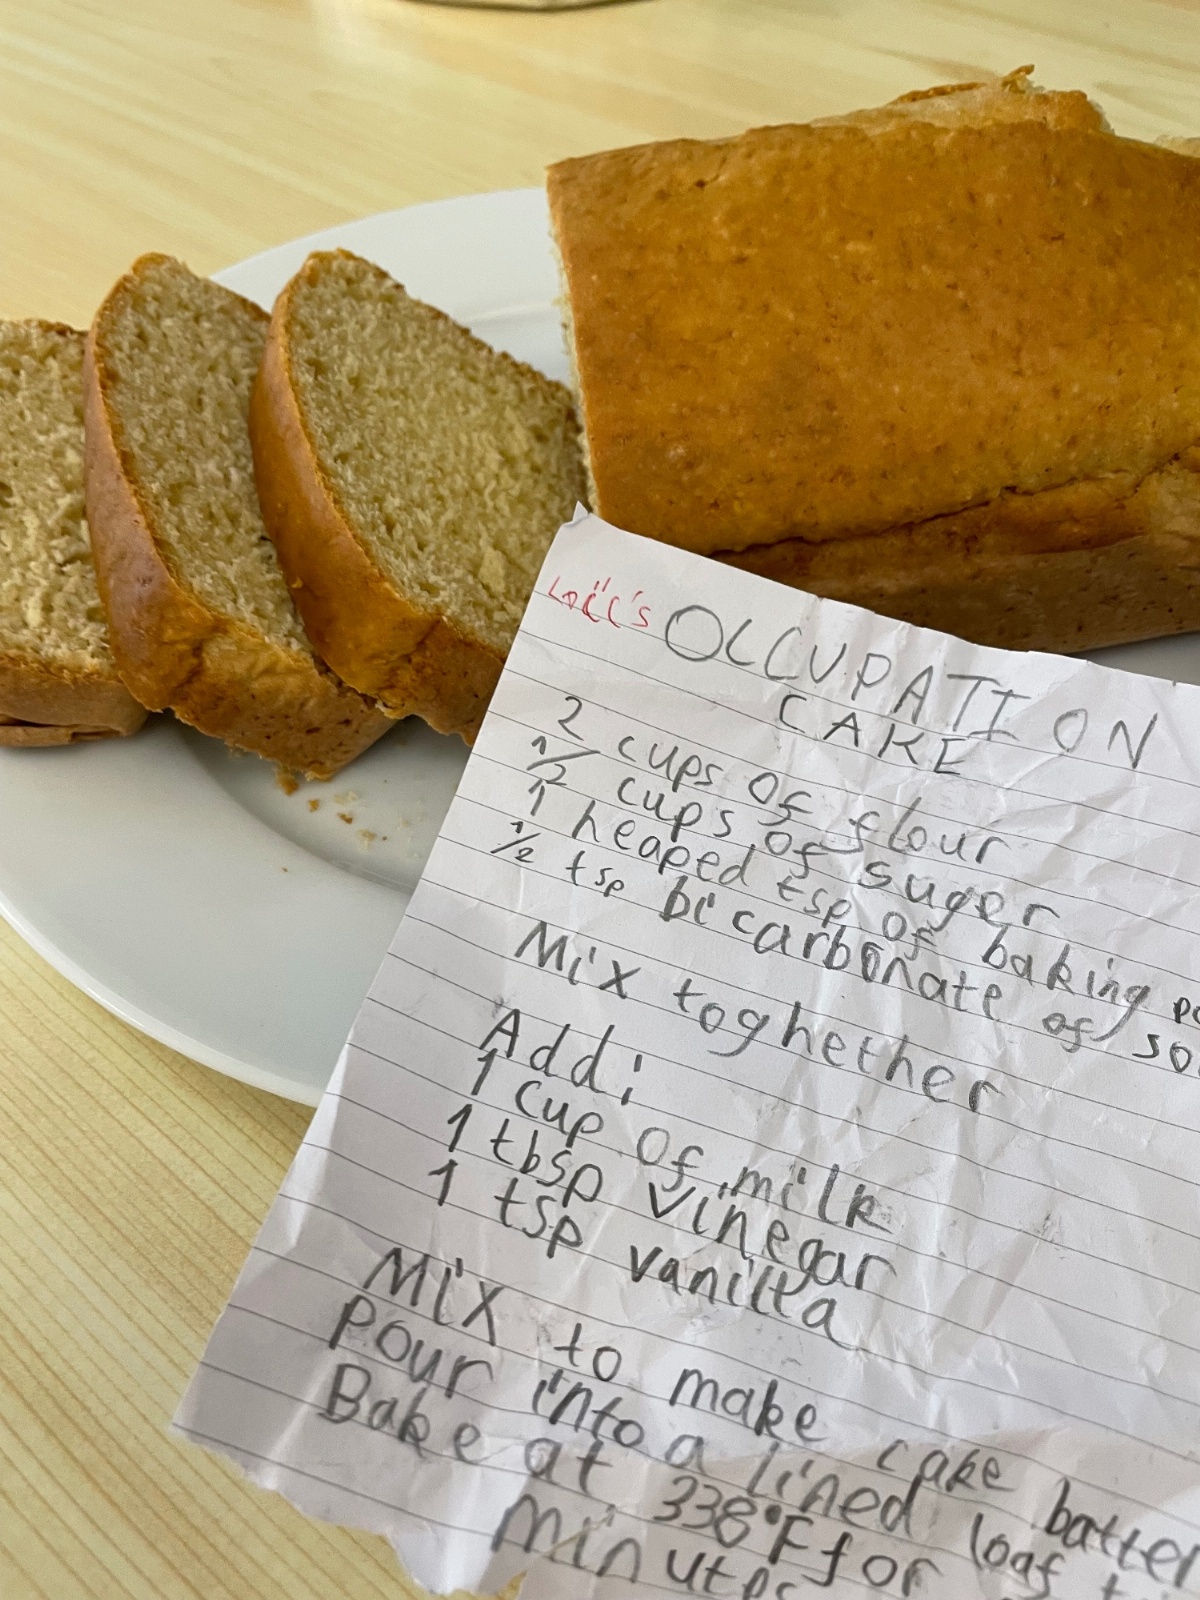 Loïc's OCCUPATION
CAKE
2 cups of flour
1/2 cups of suger
1 heaped tsp of baking
1/2 tsp bicarbonate of
Mix toghether
Add:
1 cup of milk
1 tbsp vinegar
1 tsp vanilla
Mix to make cake batter
Pour into a lined loaf
Bake at 338°F for
minutes